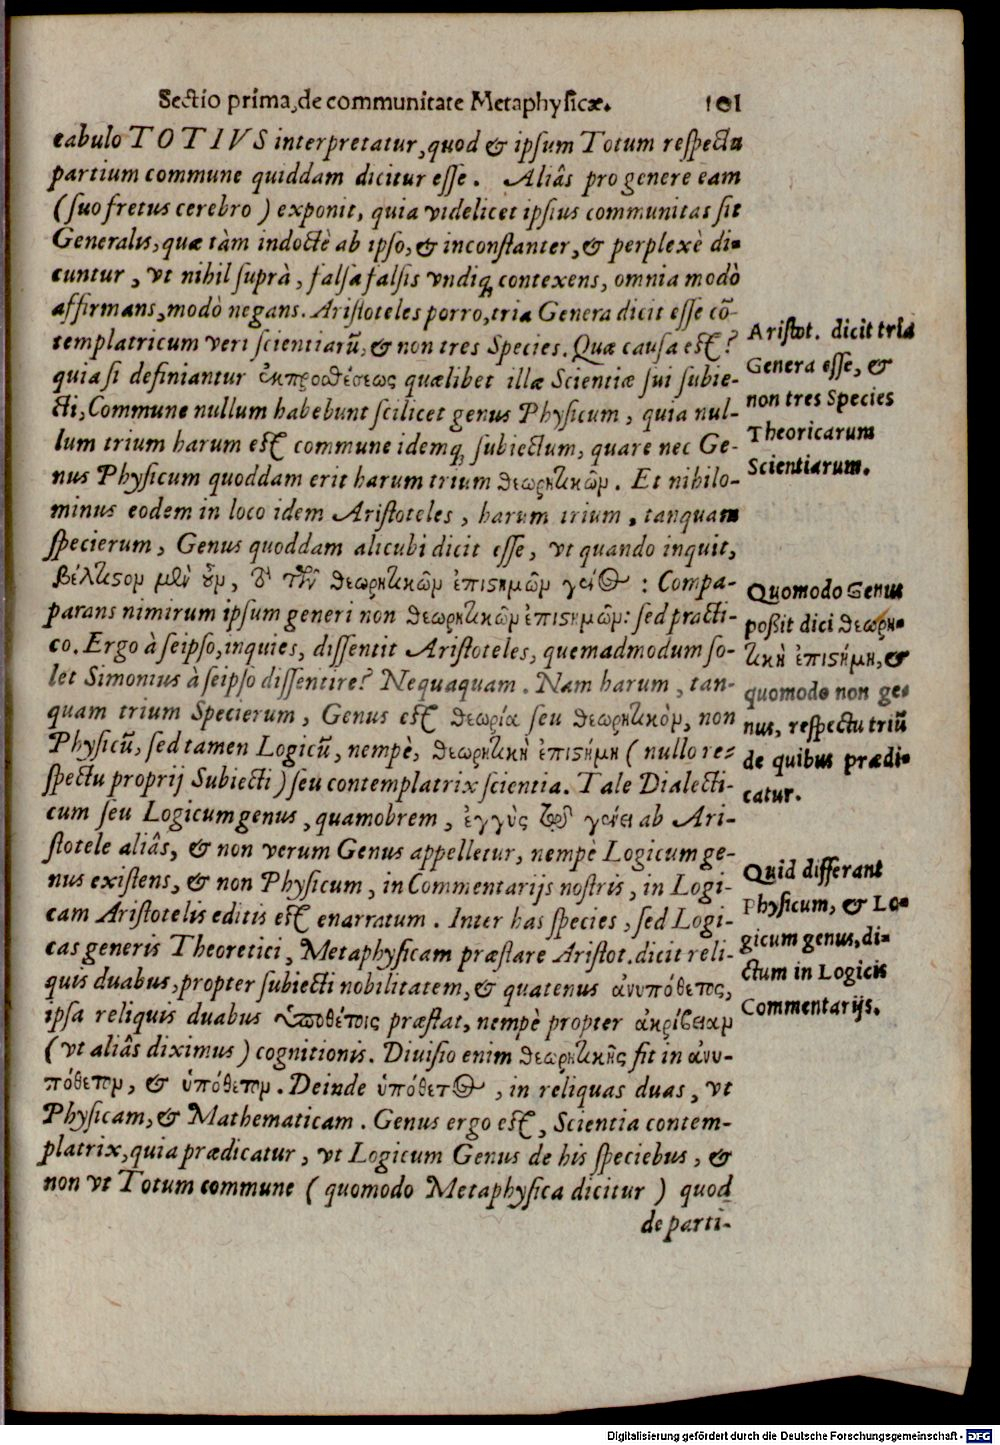 Sectio prima, de communitate Metaphysicæ. 101
cabulo TOTIVS interpretatur, quod & ipsum Totum respectu
partium commune quiddam dicitur esse. Aliâs pro genere eam
(suo fretus cerebro) exponit, quia videlicet ipsius communitas sit
Generalis, quæ tàm indoctè ab ipso, & inconstanter, & perplexè di-
cuntur, vt nihil suprà, falsa falsis vndiq; contexens, omnia modò
affirmans, modò negans. Aristoteles porro, tria Genera dicit esse cō-
templatricum veri scientiarū, & non tres Species. Quæ causa est?
quia si definiantur ἐκπροσθέσεως quælibet illæ Scientiæ sui subie-
cti, Commune nullum habebunt scilicet genus Physicum, quia nul-
lum trium harum est commune idemq; subiectum, quare nec Ge-
nus Physicum quoddam erit harum trium θεωρητικῶν. Et nihilo-
minus eodem in loco idem Aristoteles, harum trium, tanquam
specierum, Genus quoddam alicubi dicit esse, vt quando inquit,
βέλτιστον μὲν οὖν, τὸ τῶν θεωρητικῶν ἐπιστημῶν γένος: Compa-
parans nimirum ipsum generi non θεωρητικῶν ἐπιστημῶν: sed practi-
co. Ergo à seipso, inquies, dissentit Aristoteles, quemadmodum so-
let Simonius à seipso dissentire? Nequaquam. Nam harum, tan-
quam trium Specierum, Genus est θεωρία seu θεωρητικὸν, non
Physicū, sed tamen Logicū, nempè, θεωρητικὴ ἐπιστήμη (nullo re-
spectu proprij Subiecti) seu contemplatrix scientia. Tale Dialecti-
cum seu Logicum genus, quamobrem, ἐγγὺς τοῦ γένει ab Ari-
stotele aliâs, & non verum Genus appelletur, nempè Logicum ge-
nus existens, & non Physicum, in Commentarijs nostris, in Logi-
cam Aristotelis editis est enarratum. Inter has species, sed Logi-
cas generis Theoretici, Metaphysicam præstare Aristot. dicit reli-
quis duabus, propter subiecti nobilitatem, & quatenus ἀνυπόθετος,
ipsa reliquis duabus ὑποθέτοις præstat, nempè propter ἀκρίβειαν
(vt aliâs diximus) cognitionis. Diuisio enim θεωρητικῆς fit in ἀνυ-
πόθετον, & ὑπόθετον. Deinde ὑπόθετος, in reliquas duas, vt
Physicam, & Mathematicam. Genus ergo est, Scientia contem-
platrix, quia prædicatur, vt Logicum Genus de his speciebus, &
non vt Totum commune (quomodo Metaphysica dicitur) quod
de parti-
Aristot. dicit tria
Genera esse, &
non tres Species
Theoricarum
Scientiarum.
Quomodo Genus
poßit dici θεωρη-
τικὴ ἐπιστήμη, &
quomodo non ge-
nus, respectu triū
de quibus prædi-
catur.
Quid differant
Physicum, & Lo-
gicum genus, di-
ctum in Logicis
Commentarijs.
Digitalisierung gefördert durch die Deutsche Forschungsgemeinschaft - DFG